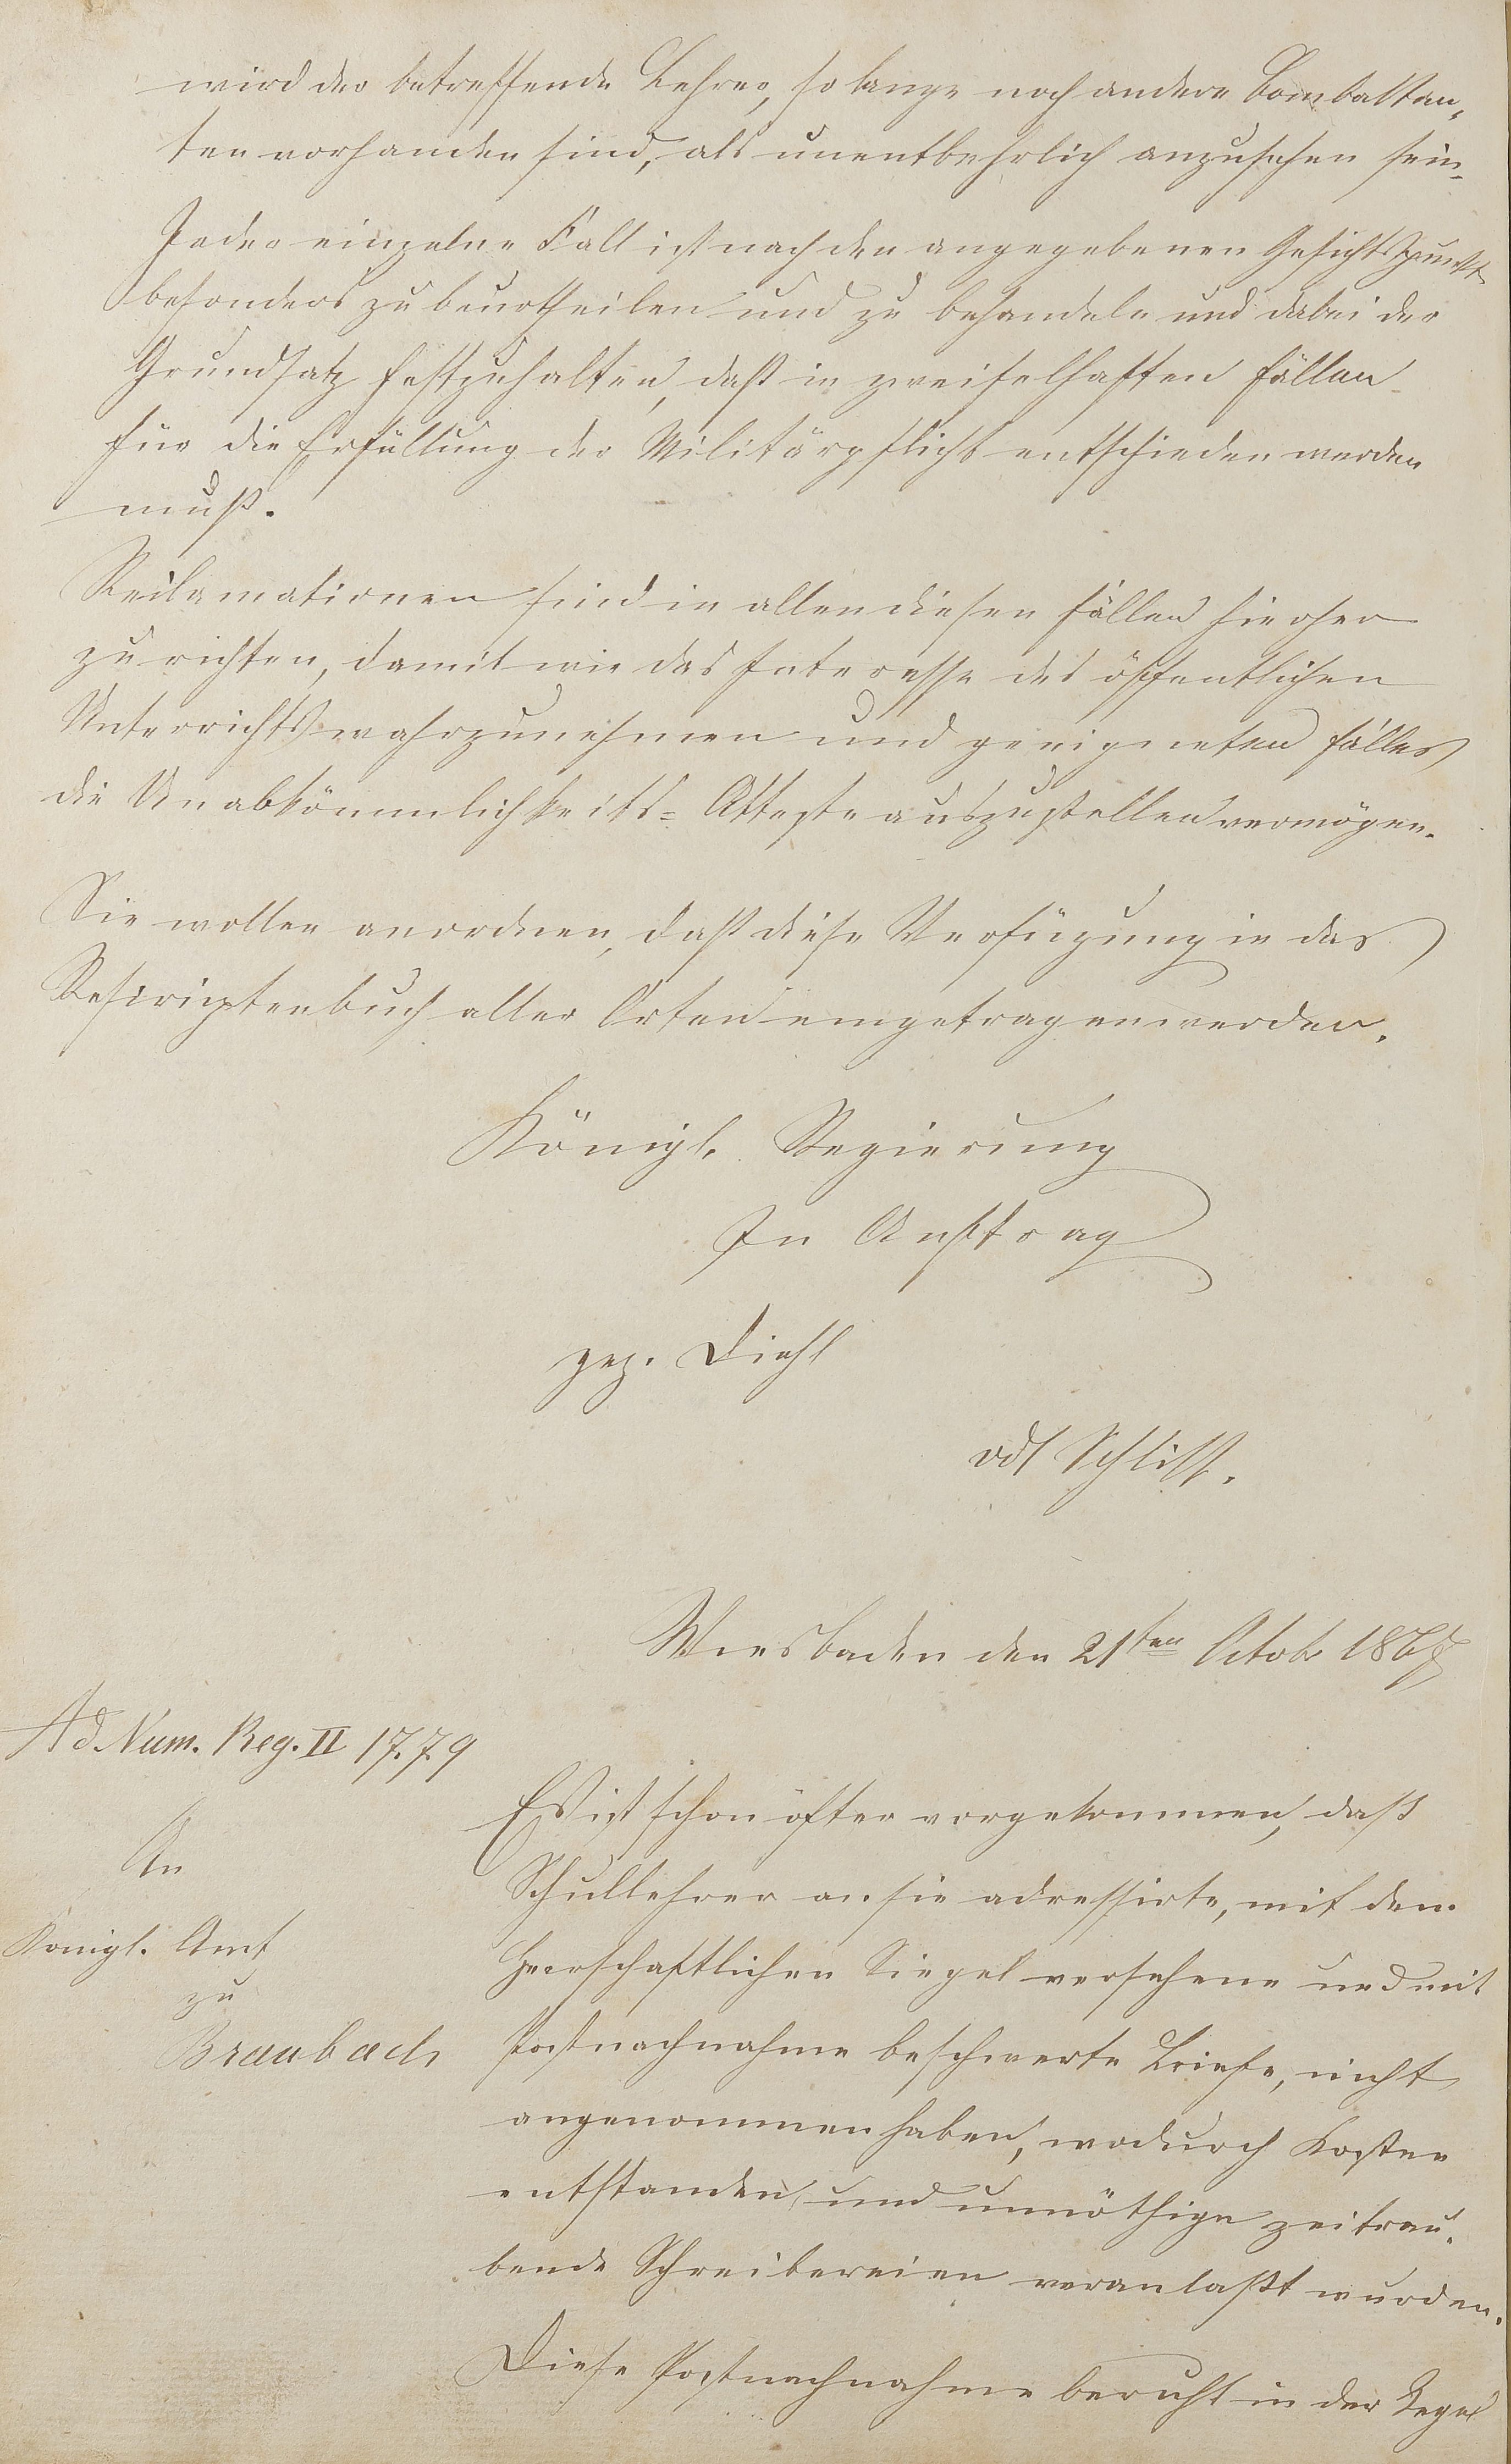 wird der betreffende Lehrer, so lange noch andere Combattan-
ten vorhanden sind, als unentbehrlich anzusehen sein.
Jeder einzelne Fall ist nach den angegebenen Gesichtspunkt
besonders zu beurtheilen und zu behandeln und dabei der
Grundsatz festzuhalten, daß in zweifelhaften Fällen
für die Erfüllung der Militärpflicht entschieden werden
muß.
Reclamationen sind in allen diesen Fällen hierher
zu richten, damit wir das Interesse des öffentlichen
Unterrichts wahrzunehmen und geeigneten Falles
die Unabkömmlichkeits-Atteste auszustellen vermögen.
Sie wollen anordnen, daß diese Verfügung in das
Rescriptenbuch aller Orten eingetragen werden.
Königl. Regierung
In Auftrag
gez. Diehl
vdt
Wiesbaden den 21ten Octob 1867
Ad Num. Reg. II 17.79
An
Königl. Amt
zu
Braubach
Es ist schon öfter vorgekommen, daß
Schullehrer an sie adressirte, mit dem
herrschaftlichen Siegel versehene und mit
Postnachnahme beschwerte Briefe, nicht
angenommen haben, wodurch Kosten
entstanden und unnöthige zeitrau-
bende Schreibereien veranlaßt wurden.
Diese Postnachnahme beruht in der Regel